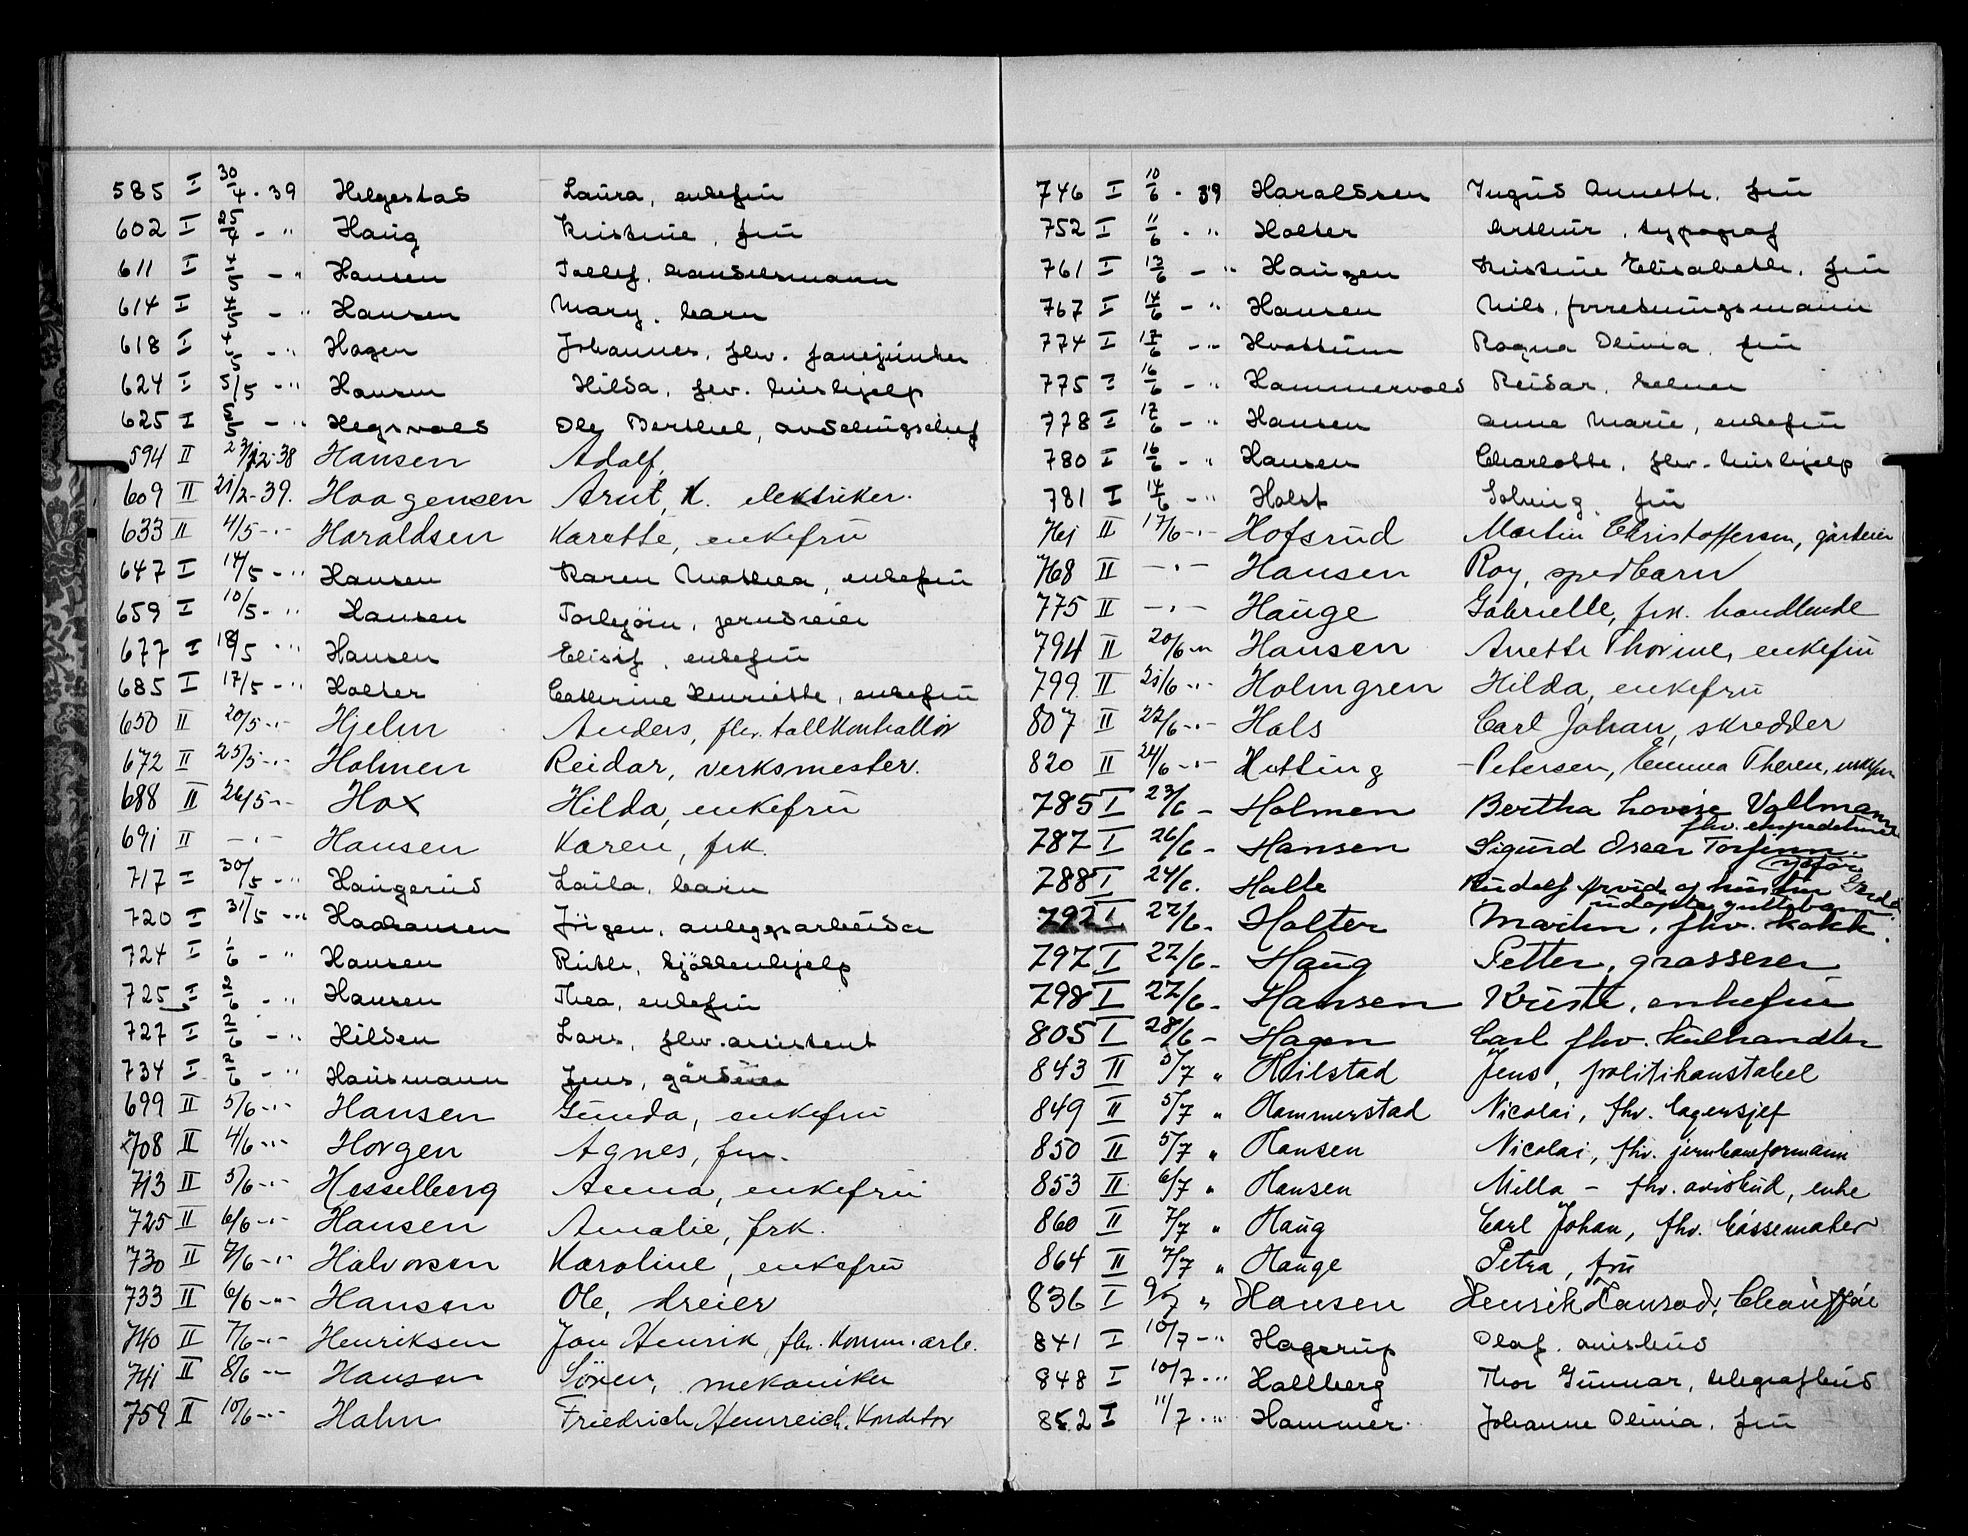 585 I 30/4 - 39 Helgestad Laura, enkefru
602 I 25/4 - " Haug Kristine, fru
611 I 4/5 - " Hansen Tollef, handelsmann
614 I 4/5 - " Hansen Mary, barn
618 I 4/5 - " Hagen Johannes, fhv. fanejunker
624 I 5/5 - " Hansen Hilda, fhv. hushjelp
625 I 5/5 - " Hegsvold Ole Berthel, avdelingschef
594 II 23/12-38 Hansen Adolf,
609 II 21/2-39. Haagensen Arnt, K. elektriker.
633 II 4/5 -"- Haraldsen Karette, enkefru
647 I 14/5 - " Hansen Karen Mathea, enkefru
659 I 10/5 - " Hansen Torbjörn, jerndreier
677 I 18/5 - " Hansen Elisif, enkefru
685 I 17/5 - " Holter Cathrine Henriette, enkefru
650 II 20/5 -"- Hjelm Anders, fhv. tollkontrollör
672 II 25/5 -"- Holmen Reidar, verksmester.
688 II 26/5 -"- Hox Hilda, enkefru
691 II -"- Hansen Karen, frk.
717 I 30/5 - " Haugerud Laila, barn
720 I 31/5 - " Haahansen Jörgen, anleggsarbeider
724 I 1/6 - " Hansen Ruth, kjökkenhjelp
725 I 2/6 - " Hansen Thea, enkefru
727 I 2/6 - " Hilden Lars, fhv. assistent
734 I 2/6 - " Hausmann Jens, gårdeier
699 II 5/6 -"- Hansen Gunda, enkefru
708 II 4/6 -"- Horgen Agnes, fru.
713 II 5/6 -"- Hesselberg Anna, enkefru
725 II 6/6 -"- Hansen Amalie, frk.
730 II 7/6 -"- Halvorsen Karoline, enkefru
733 II 6/6 -"- Hansen Ole, dreier
740 II 7/6 -"- Henriksen Jon Henrik, fhv. komm. arb.
741 II 8/6 -"- Hansen Sören, mekaniker
759 II 10/6 -"- Hahn Friedrich Heinreich, Konditor
746 I 10/6 - 39 Haraldsen Ingrid Annette, fru
752 I 11/6 - " Holter Arthur, typograf
761 I 13/6 - " Haugen Kristine Elisabeth, fru
767 I 14/6 - " Hansen Nils, forretningsmann
774 I 17/6 - " Hvattum Ragna Olivia, fru
775 I 16/6 - " Hammervold Reidar, kelner
778 I 17/6 - " Hansen Anne Marie, enkefru
780 I 16/6 - " Hansen Charlotte, fhv. hushjelp
781 I 14/6 - " Holst Solveig, fru
761 II 17/6 -"- Hofsrud Martin Christoffersen, gårdeier
768 II -"- Hansen Roy, spedbarn
775 II -"- Hauge Gabrielle, frk. handlende
794 II 20/6 -"- Hansen Anette Thorine, enkefru
799 II 21/6 -"- Holmgren Hilda, enkefru
807 II 22/6 -"- Hals Carl Johan, skredder
820 II 24/6 -"- Hutting -Petersen, Emma Theren, enkefru
785 I 23/6 - Holmen Bertha Lovise Vollmann
fhv. ekspeditrice
787 I 26/6 - Hansen Sigurd Oscar Torfinn.
788 I 24/6. Halle Rudolf
792 I 27/6. Holter Martin, fhv. kokk.
797 I 27/6 - Haug Petter, grosserer
798 I 27/6 - Hansen Kristi, enkefru
805 I 28/6 - Hagen Carl fhv. kulhandler
843 II 5/7 " Hvilstad Jens, politikonstabel
849 II 5/7 " Hammerstad Nicolai, fhv. lagersjef
850 II 5/7 " Hansen Nicolai, fhv. jernbaneformann
853 II 6/7 " Hansen Milla - fhv. avisbud, enke
860 II 7/7 " Haug Carl Johan, fhv. låssemaker
864 II 7/7 " Hauge Petra, fru
836 I 9/7 " Hansen Henrik Konrad, Chauffør
841 I 10/7 - " Hagerup Olaf. avisbud
848 I 10/7 - " Hallberg Thor Gunnar, telegrafbud
852 I 11/7 - " Hammer. Johanne Olivia, fru